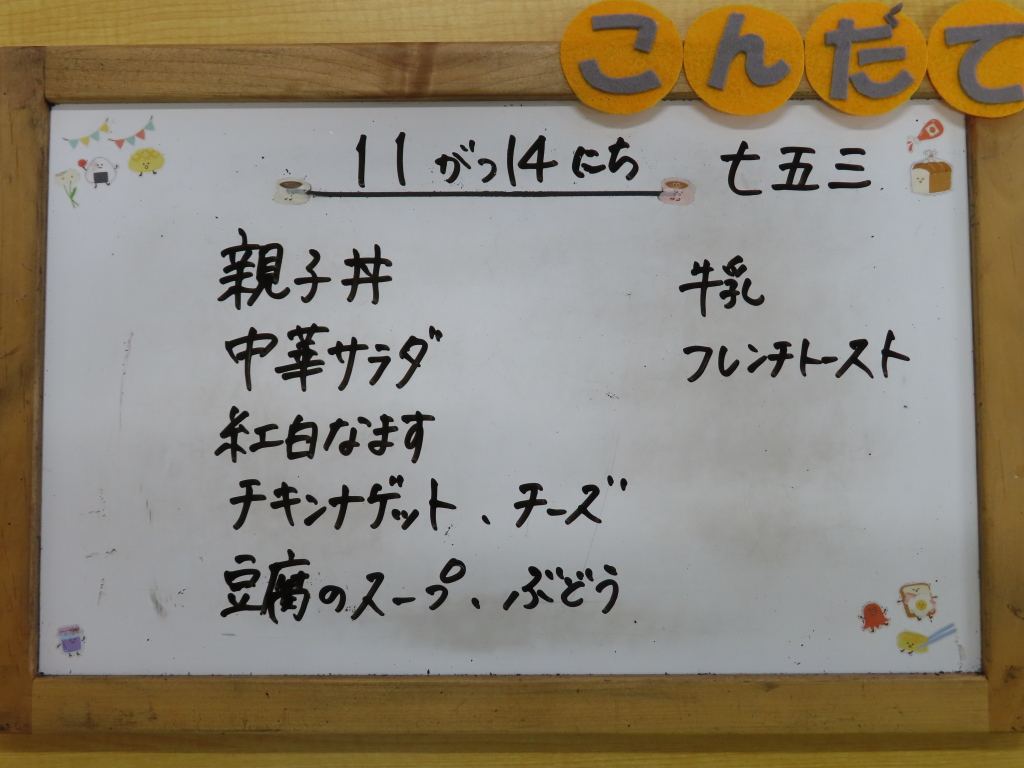 こんだて
11がつ14にち 七五三
親子丼
中華サラダ
紅白なます
チキンナゲット、チーズ
豆腐のスープ、ぶどう
牛乳
フレンチトースト